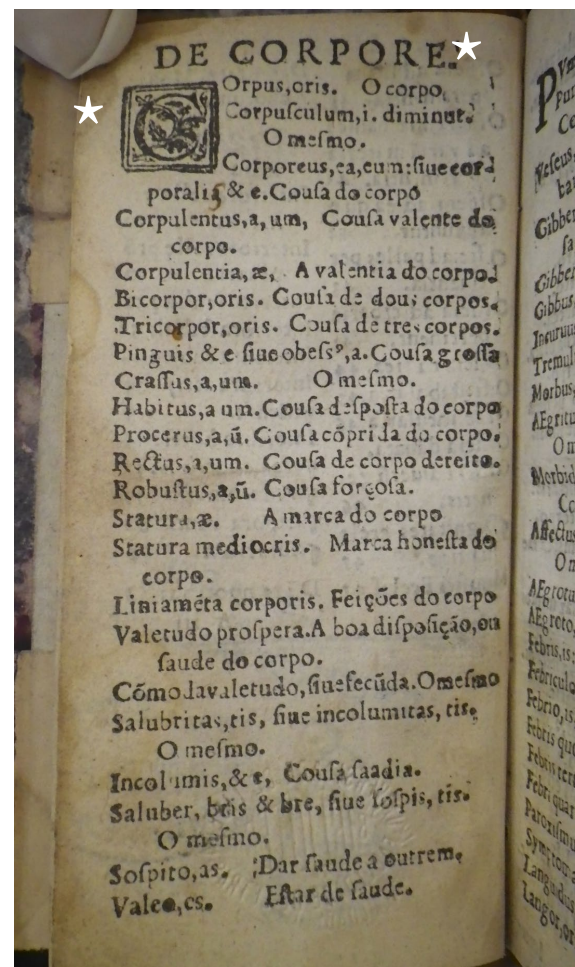 DE CORPORE.
COrpus,oris. O corpo,
Corpuſculum,i. diminut.
O meſmo.
Corporeus,ea,eum:ſiue cor-
poralis & e. Couſa do corpo
Corpulentus,a,um, Couſa valente do
corpo.
Corpulentia,æ, A valentia do corpo.
Bicorpor,oris. Couſa de dous corpos.
Tricorpor,oris. Couſa de tres corpos.
Pinguis & e ſiue obeſsꝰ,a. Couſa groſſa
Craſſus,a,um. O meſmo.
Habitus,a um. Couſa deſpoſta do corpo
Procerus,a,ũ. Couſa cõprida do corpo.
Rectus,a,um. Couſa de corpo dereito.
Robuſtus,a,ũ. Couſa forçoſa.
Statura,æ. A marca do corpo
Statura mediocris. Marca honeſta do
corpo.
Liniamẽta corporis. Feições do corpo
Valetudo proſpera. A boa diſpoſição, ou
ſaude do corpo.
Cõmoda valetudo, ſiue ſecũda. O meſmo
Salubritas,tis, ſiue incolumitas, tis.
O meſmo.
Incolumis,& e, Couſa ſaadia.
Saluber, bris & bre, ſiue ſoſpis, tis.
O meſmo.
Soſpito,as. Dar ſaude a outrem.
Valeo,es. Eſtar de ſaude.
P
Gibbus,
Tremul
Morbus,
AEgritu
O m
Morbid
Co
Affectus
O m
AEgrotu
AEgroto,
Febris,is:
Febricula
Febrio,is,
Febris que
Febris ter
Febri quar
Paroxiſmu
Symptoma
Languidus
Langor,or